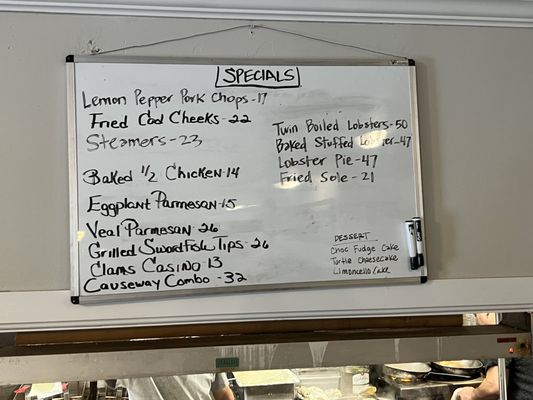 SPECIALS
Lemon Pepper Pork Chops-17
Fried Cod Cheeks-22
Steamers-23
Baked 1/2 Chicken-14
Eggplant Parmesan-15
Veal Parmesan-26
Grilled Swordfish Tips-26
Clams Casino-13
Causeway Combo-32
Twin Boiled Lobsters-50
Baked Stuffed Lobster-47
Lobster Pie-47
Fried Sole-21
DESSERT
Choc Fudge Cake
Turtle Cheesecake
Limoncello Cake